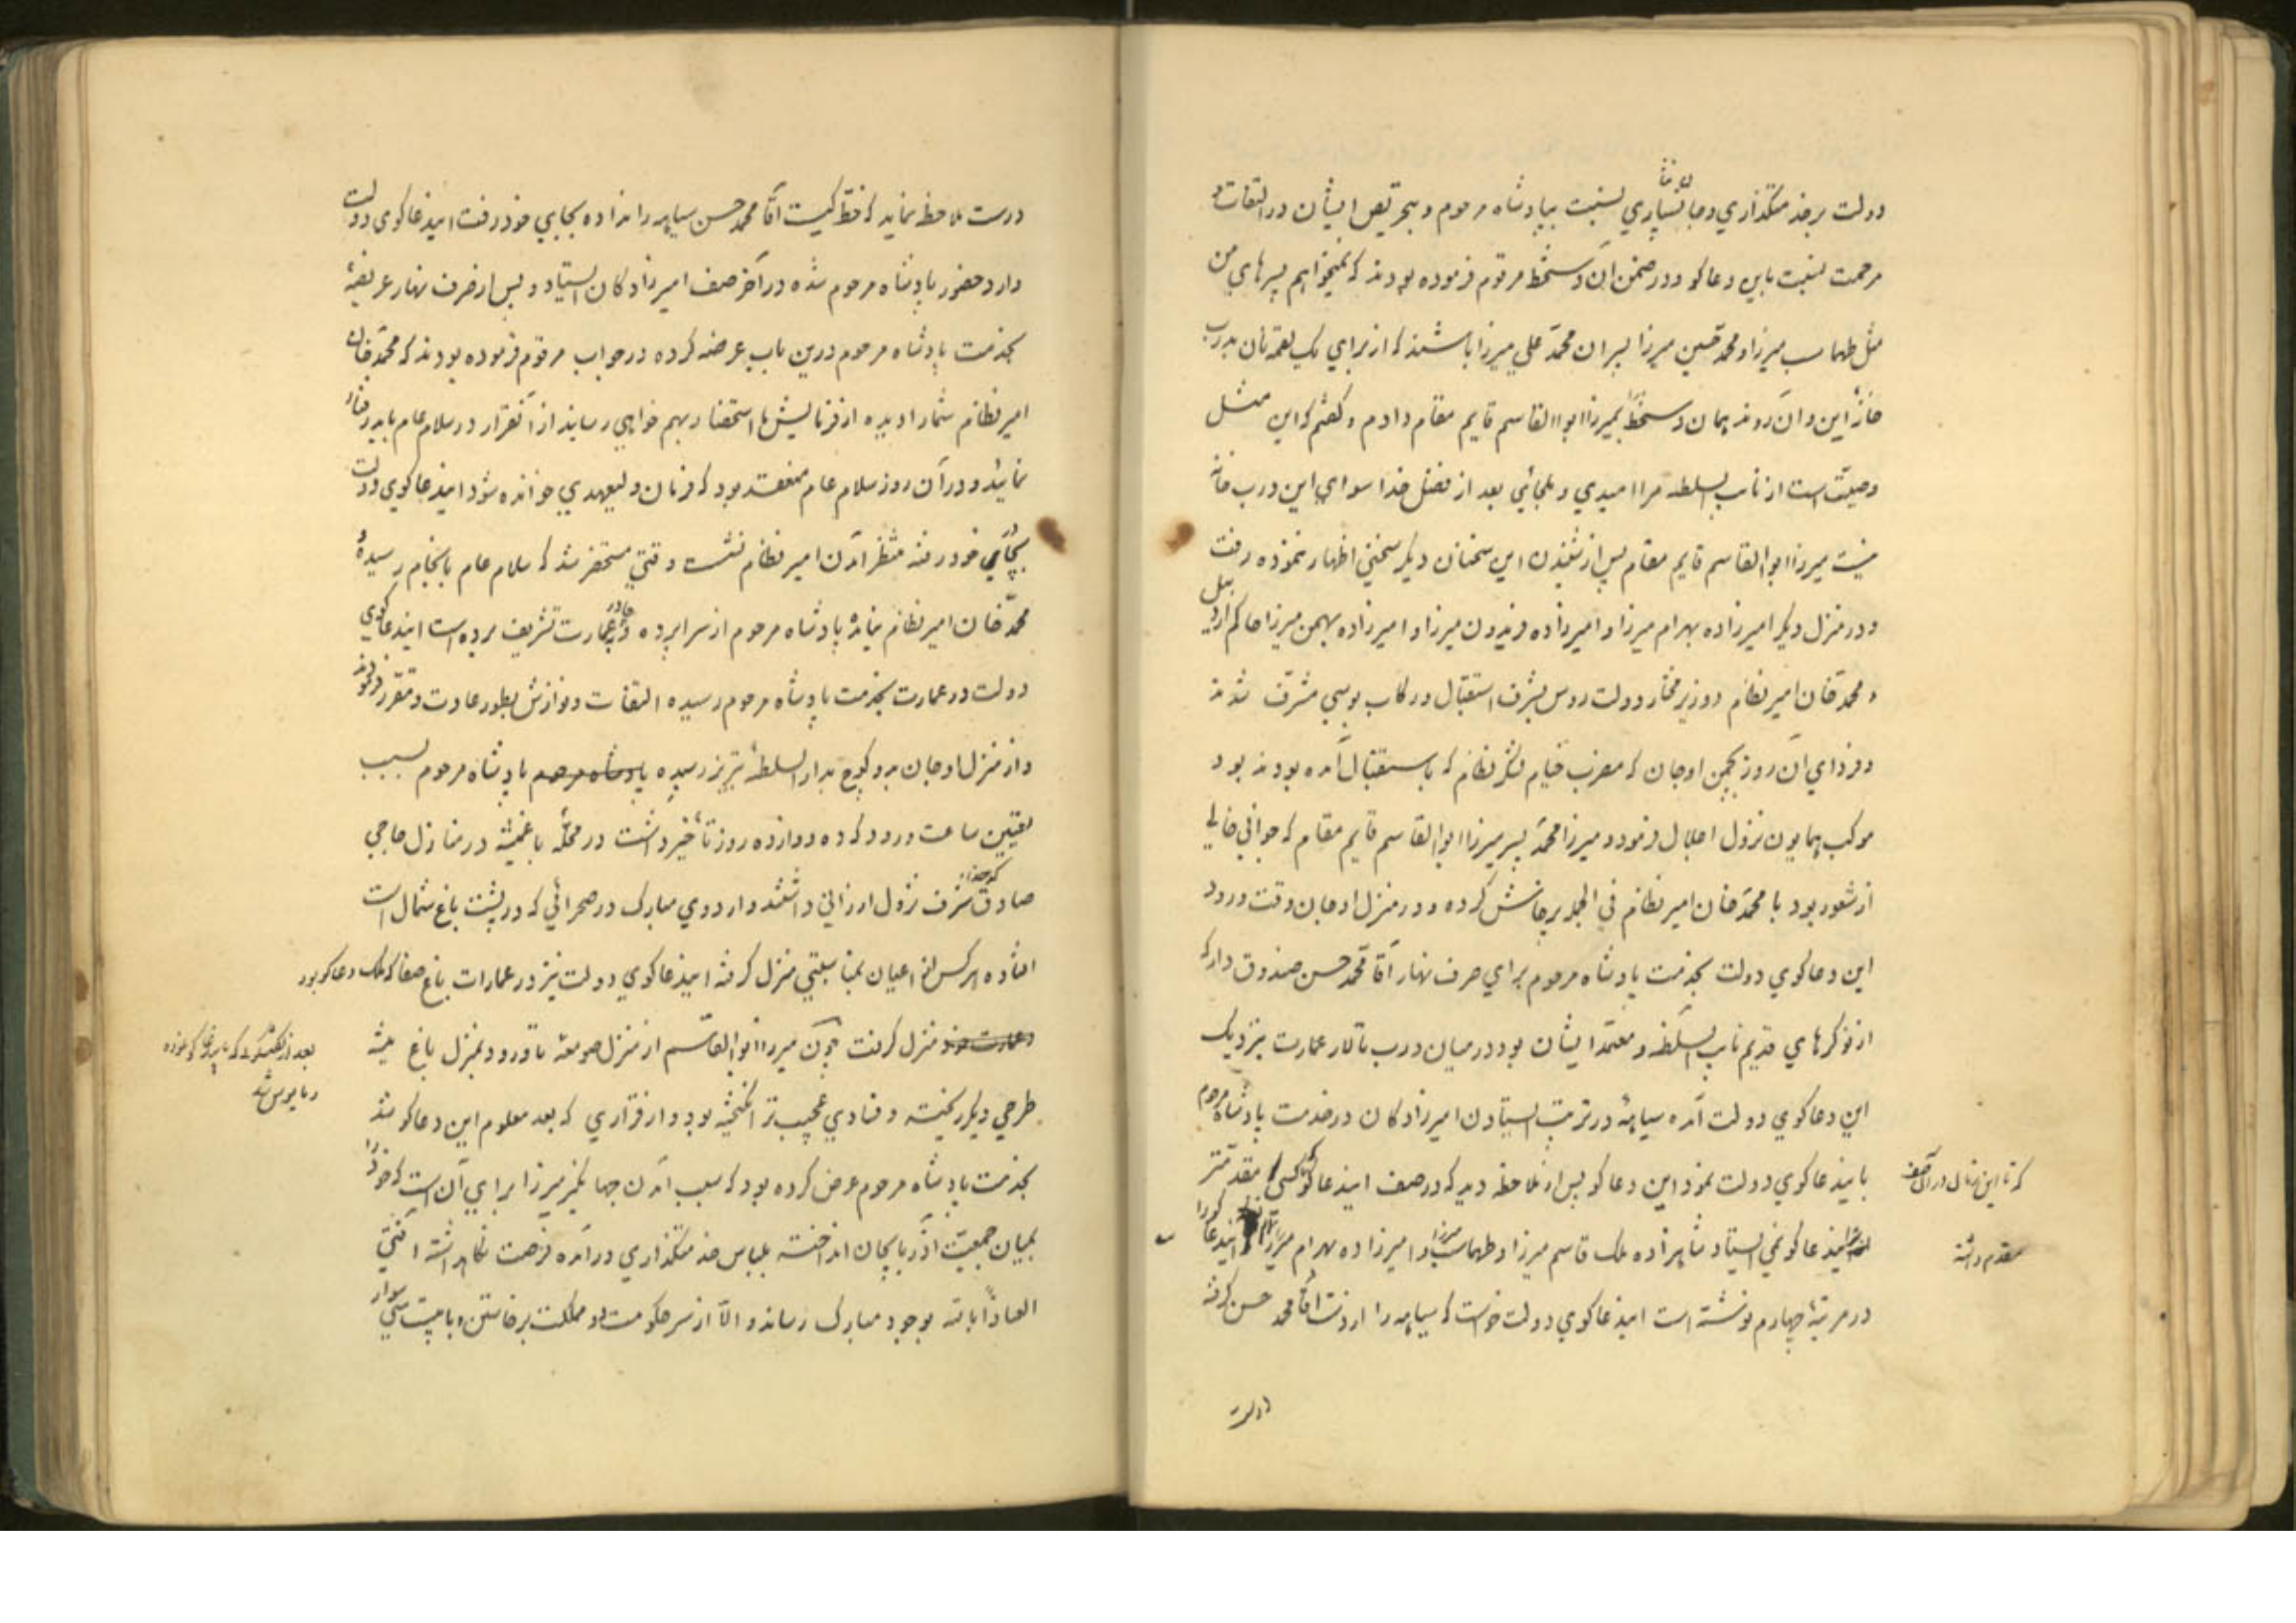 دولت بر خدمتگذاری و جانسپاری نسبت بپادشاه مرحوم و بتحریص ایشان در التفات و
مرحمت نسبت باین دعاگو و در ضمن آن دستخط مرقوم فرموده بودند که نمیخواهم پسرهای من
مثل طهماسب میرزا و محمد حسین میرزا پسران محمد علی میرزا باشند که از برای یک لقمه نان بدرب
خانهٔ این و آن روند همان دستخط بمیرزا ابوالقاسم قایم مقام دادم و گفتم که این مثل
وصیت است از نایب السلطنه مرا امیدی و ملجائی بعد از فضل خدا سوای این درب خانه
نیست میرزا ابوالقاسم قایم مقام پس از شنیدن این سخنان دیگر سخنی اظهار ننموده رفت
و در منزل دیگر امیرزاده بهرام میرزا و امیرزاده فریدون میرزا و امیرزاده بهمن میرزا حاکم اردبیل
و محمد خان امیر نظام و وزیر مختار دولت روس بشرف استقبال و رکاب بوسی مشرف شدند
و فردای آن روز بچمن اوجان که مضرب خیام لشکر نظام که باستقبال آمده بودند بود
موکب همایون نزول اجلال فرمود و میرزا محمد پسر میرزا ابوالقاسم قایم مقام که جوانی خالی
از شعور بود با محمد خان امیر نظام فی الجمله پرخاش کرده و در منزل اوجان وقت ورود
این دعاگوی دولت بخدمت پادشاه مرحوم برای صرف نهار آقا محمد حسن صندوق دار که
از نوکرهای قدیم نایب السلطنه و معتمد ایشان بود در میان درب تالار عمارت نزدیک
این دعاگوی دولت آمده سیاههٔ در ترتیب ایستادن امیرزادگان در خدمت پادشاه مرحوم
باینداعاگوی دولت نمود این دعاگو پس از ملاحظه دید که در صف ایندعاگو کسی مقدمتر
که تا این زمان در آن صف
ایندعاگو نمی ایستاد شاهزاده ملک قاسم میرزا و طهماسب میرزا و امیرزاده بهرام میرزا ایندعاگو را
مقدم داشته
در مرتبهٔ چهارم نوشته است ایندعاگوی دولت خواست که سیاهه را از دست آقا محمد حسن گرفته
درست
درست ملاحظه نماید که خط کیست آقا محمد حسن سیاهه را نداده بجای خود رفت ایندعاگوی دولت
وارد حضور پادشاه مرحوم شده در آخر صف امیرزادگان ایستاد و پس از صرف نهار عریضهٔ
بخدمت پادشاه مرحوم درین باب عرضه کرده در جواب مرقوم فرموده بودند که محمد خان
امیر نظام شما را دیده از فرمایش ما استحضار بهم خواهی رسانید از آنقرار در سلام عام باید رفتار
نمائید و در آن روز سلام عام منعقد بود که فرمان ولیعهدی خوانده شود ایندعاگوی دولت
بجای خود رفته منتظر آمدن امیر نظام نشست وقتی مستحضر شد که سلام عام بانجام رسیده و
محمد خان امیر نظام نیامده پادشاه مرحوم از سراپرده و چادر بعمارت تشریف برده است ایندعاگوی
دولت در عمارت بخدمت پادشاه مرحوم رسیده التفات و نوازش بطور عادت و مقرر فرمودند
و از منزل اوجان بدو کوچ بدار السلطنهٔ تبریز رسیده پادشاه مرحوم پادشاه مرحوم بسبب
تعیین ساعت ورود که ده دوازده روز تأخیر داشت در محلهٔ باغمیشه در منازل حاجی
صادق که خدا شرف نزول ارزانی داشتند و اردوی مبارک در صحرائی که در پشت باغ شمال است
افتاده هر کس از اعیان بمناسبتی منزل گرفته ایندعاگوی دولت نیز در عمارات باغ صفا که ملک دعاگو بود
منزل گرفت چون میرزا ابوالقاسم از منزل صومعه تا ورود بمنزل باغ میشه
بعد از گفتگوی که با دعاگو نموده
و مایوس شد
طرحی دیگر ریخته و فسادی عجیب تر انگیخته بود و از قراری که بعد معلوم این دعاگو شد
بخدمت پادشاه مرحوم عرض کرده بود که سبب آمدن جهانگیر میرزا برای آن است که خود را
بمیان جمعیت آذربایجان انداخته بلباس خدمتگذاری درآمده فرصت نگاهداشته آفتی
العیاذاً بالله بوجود مبارک رساند و الا از سر حکومت دو مملکت برخاستن و با بیست سوار